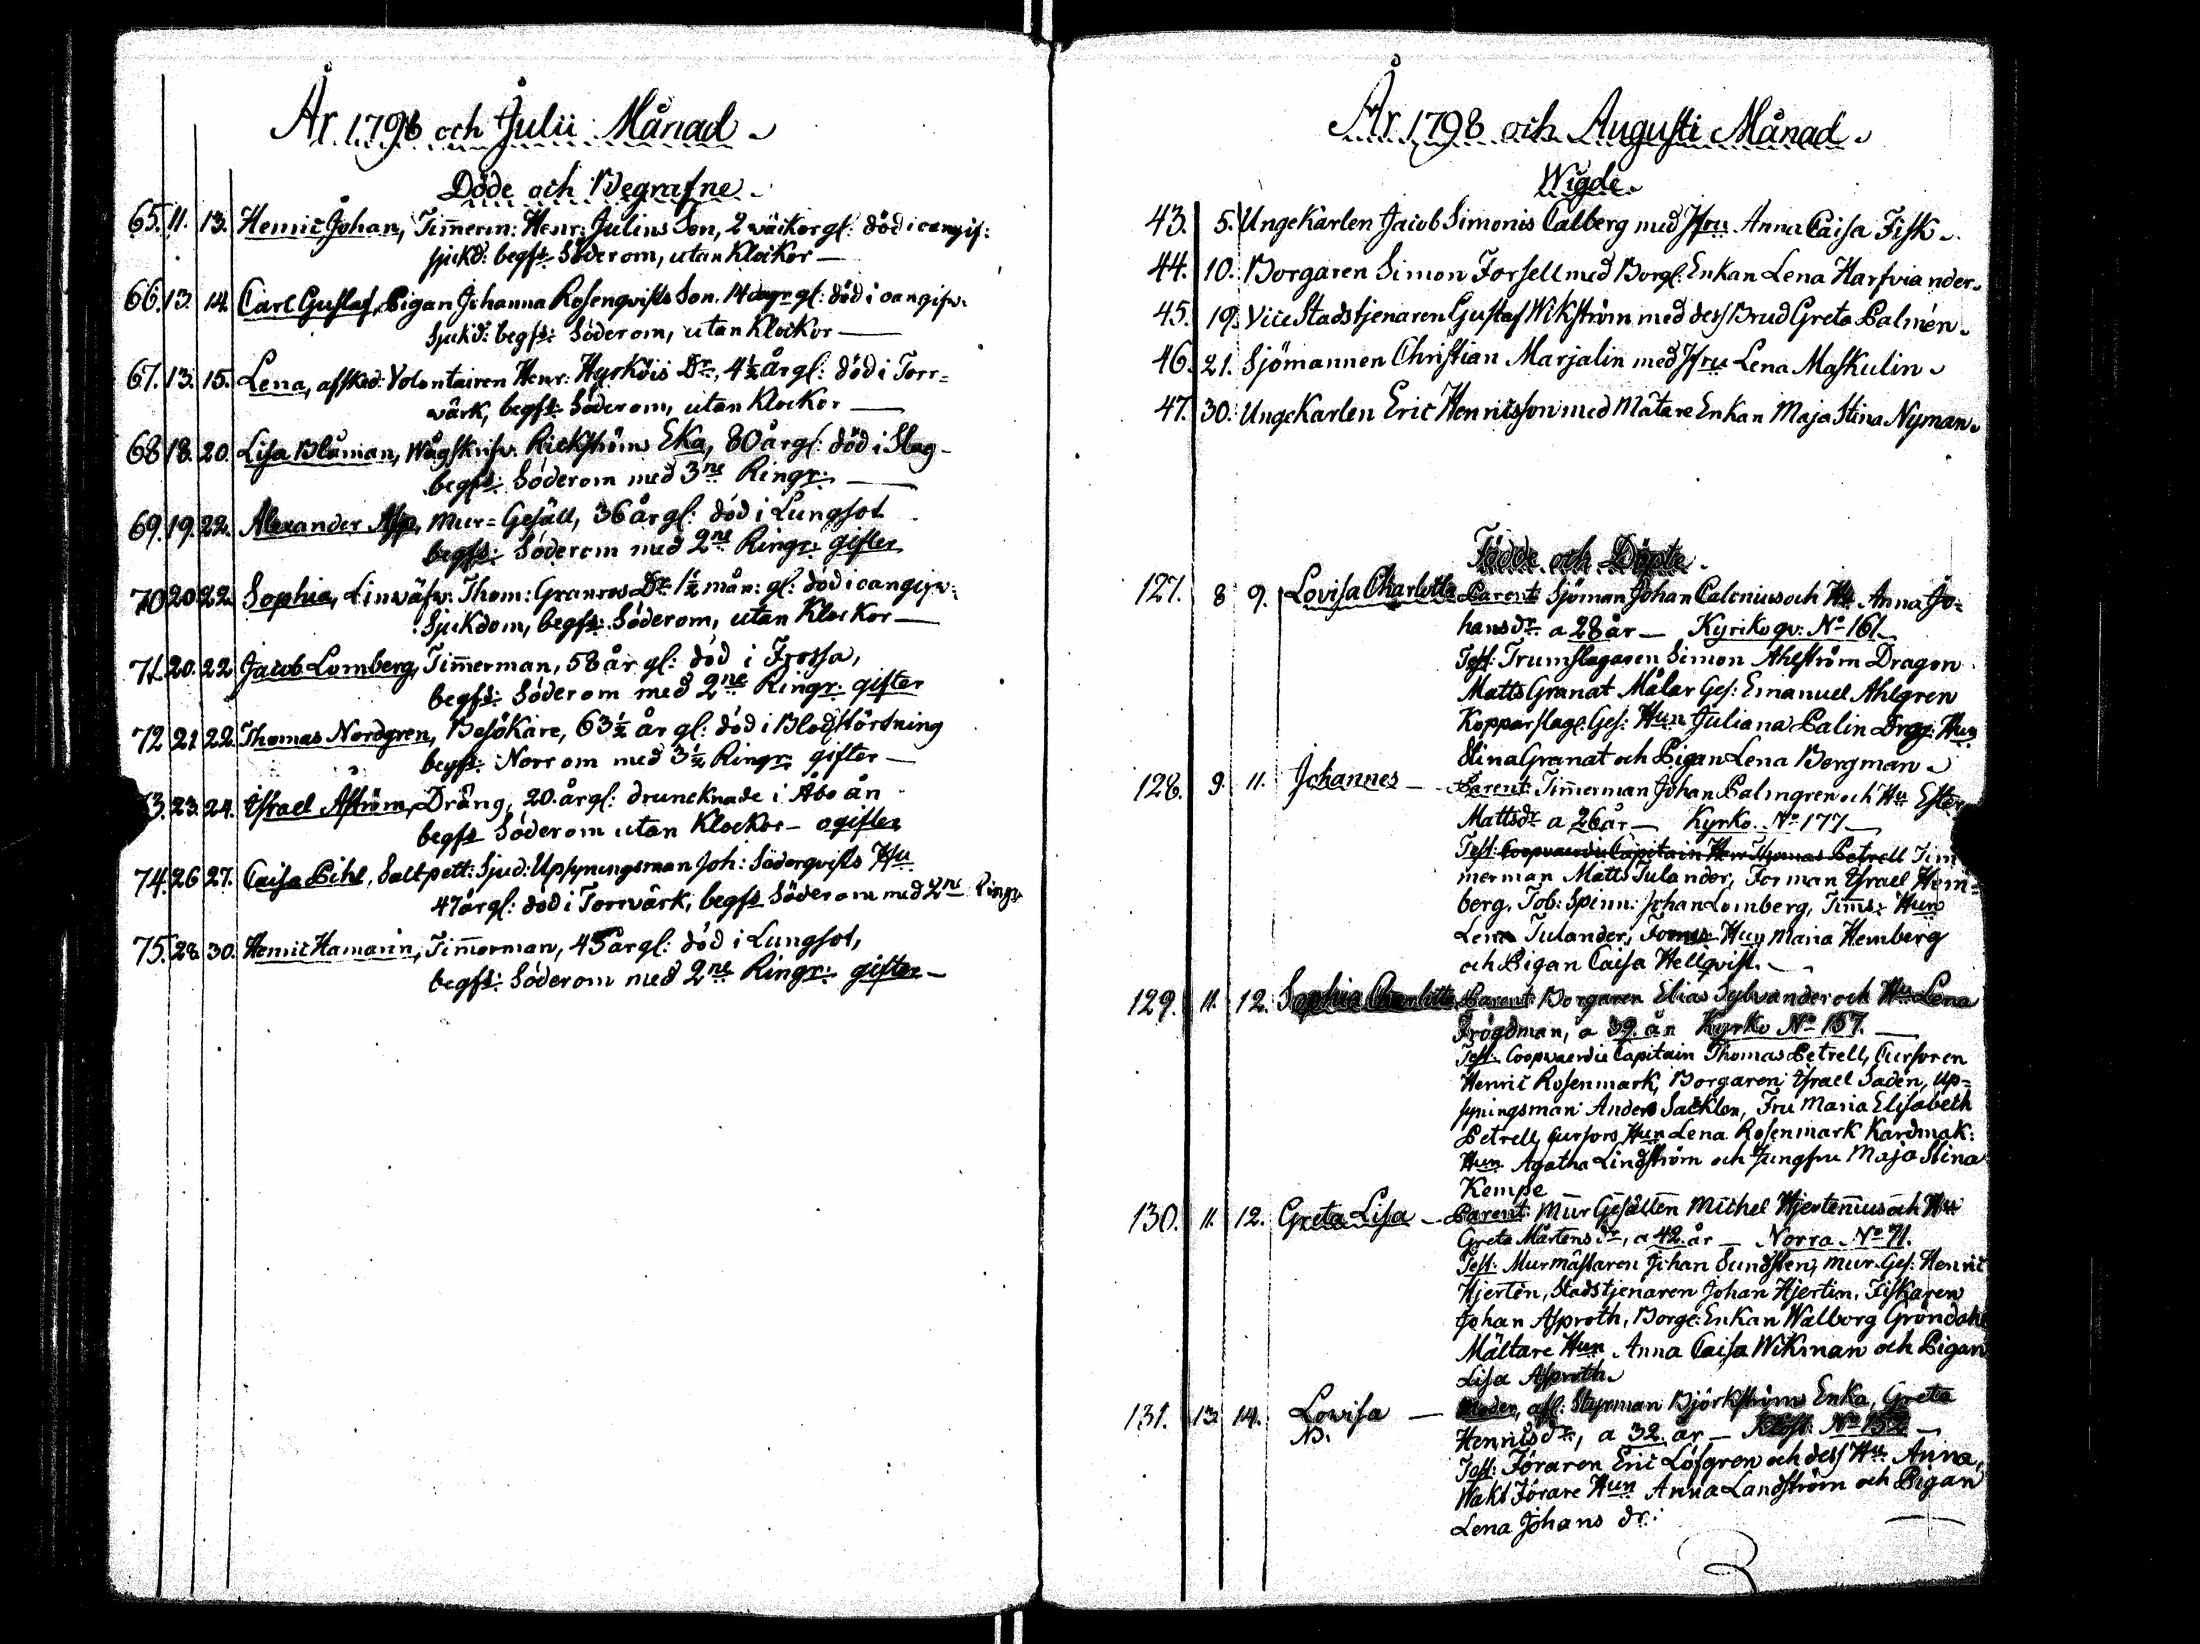 År 1798 och Julii Månad.
Döde och Begrafne.
65. 11. 13. Henric Johan, Tim̄erm: Henr: Julins Son, 2 wäikor gl: död i oangif:
sjukd: begfs: Söder om, utan Klockor —
66. 13. 14. Carl Gustaf, Pigan Johanna Rosenqvists Son. 14 dagr gl: död i oangifw:
Sjukd: begfs: Söder om, utan Klockor —
67. 13. 15. Lena, afsked: Volontairen Henr: Hyrköis Dr, 4½ år gl: död i Torr=
wärk, begfs: Söder om, utan Klockor —
68. 18. 20. Lisa Blåman, Wågskrifv: Rickströms Eka, 80 år gl: död i Slag-
begfs: Söder om med 3ne Ringr: —
69. 19. 22. Alexander Asp, Mur-Gesäll, 36 år gl: död i Lungsot
begfs: Söder om med 2ne Ringr: gifter
70. 20. 22. Sophia, Linwäfw: Thom: Granroos Dr. 1½ mån: gl: död i oangifw:
Sjukdom, begfs: Söder om, utan Klockor —
71. 20. 22. Jacob Lomberg, Tim̄erman, 58 år gl: död i Frossa,
begfs: Söder om med 2ne Ringr: gifter
72. 21. 22. Thomas Nordgren, Besökare, 63½ år gl: död i Blodstörtning
begfs: Norr om med 3½ Ringr: gifter —
3. 23. 24. Israel Åström, Dräng, 20. år gl: druncknade i Åbo ån
begfs Söder om utan Klockor — ogifter
74. 26 27. Caisa Pihl, Saltpett: Sjud: Upsyningsman Joh: Söderqvists Hu
47 år gl: död i Torrwärk, begfs Söder om med 2ne Ringr
75. 28. 30. Henric Hamarin, Tim̄erman, 45 år gl: död i Lungsot,
begfs: Söder om med 2ne Ringr: gifter —
År 1798 och Augusti Månad.
Wigde.
43. 5. Unge Karlen Jacob Simonis Calberg med Jfru Anna Caisa Fisk.
44. 10. Borgaren Simon Forsell med Borgl: Enkan Lena Harfviander.
45. 19. Vice Stadstjenaren Gustaf Wikström med dess Brud Greta Palmén.
46. 21. Sjömannen Christian Marjalin med Jfru Lena Maskulin.
47. 30. Unge Karlen Eric Henricsson med Mätare Enkan Maja Stina Nyman.
Födde och Döpte.
127. 8 9. Lovisa Charlotta Parent: Sjöman Johan Calenius och Hu Anna Jo=
hansdr. a 28 år — Kyriko qv: No 161.
Test: Trumslagaren Simon Ahlström Dragon
Matts Granat Målar Ges: Emanuel Ahlgren
Kopparslag: Ges: Hun Juliana Palin Drag: Hun
Stina Granat och Pigan Lena Bergman.
128. 9. 11. Johannes — Parent: Tim̄erman Johan Palmgren och Hu Ester
Mattsdr a 26 år — Kyrko. No 177 —
Test: Coopvaerdie Capitain Herr Thomas Petrell Tim
merman Matts Tulander, Forman Israel Hem=
berg, Tob: Spinn: Johan Lomberg, Tims: Hun
Lena Tulander, Forms: Hun Maria Hemberg
och Pigan Caisa Hellqvist. —
129. 11. 12. Sophia Charlotta Parent: Borgaren Elias Sylvander och Hu Lena
Frögdman, a 39. år Kyrko No 157. —
Test: Coopvaerdie Capitain Thomas Petrell, Cursoren
Henric Rosenmark, Borgaren Israel Saden, Up=
syningsman Anders Sacklen, Fru Maria Elisabeth
Petrell Cursors Hun Lena Rosenmark Kardmak:
Hun Agatha Lindström och Jungfru Maja Stina
Kempe
130. 11. 12. Greta Lisa — Parent: Mur Gesällen Michel Hjertenius och Hu
Greta Mårtens dr, a 42. år — Norra No 71.
Test: Murmästaren Johan Sundsten, Mur-Ges: Henric
Hjertén, Stadstjenaren Johan Hjertin, Fiskaren
Johan Asproth, Borge: Enkan Walborg Gröndahl
Mältare Hun Anna Caisa Wikman och Pigan
Lisa Asproth.
131. 13. 14. Lowisa — Moder, afl: Styrman Björkströms Enka, Greta
N. Henricsdr:, a 32. år — Klost: No 152 —
Test: Föraren Eric Löfgren och dess Hu Anna,
Wakt Förare Hun Anna Landström och Pigan
Lena Johans dr: